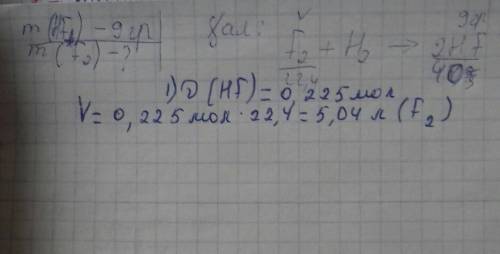 m(HF) - 9 гр
m(F₂) - ?
V 9гр.
F₂ + H₂ → 2HF
22,4 40
1) υ(HF) = 0,225 мол
V = 0,225 мол · 22,4 = 5,04 л (F₂)